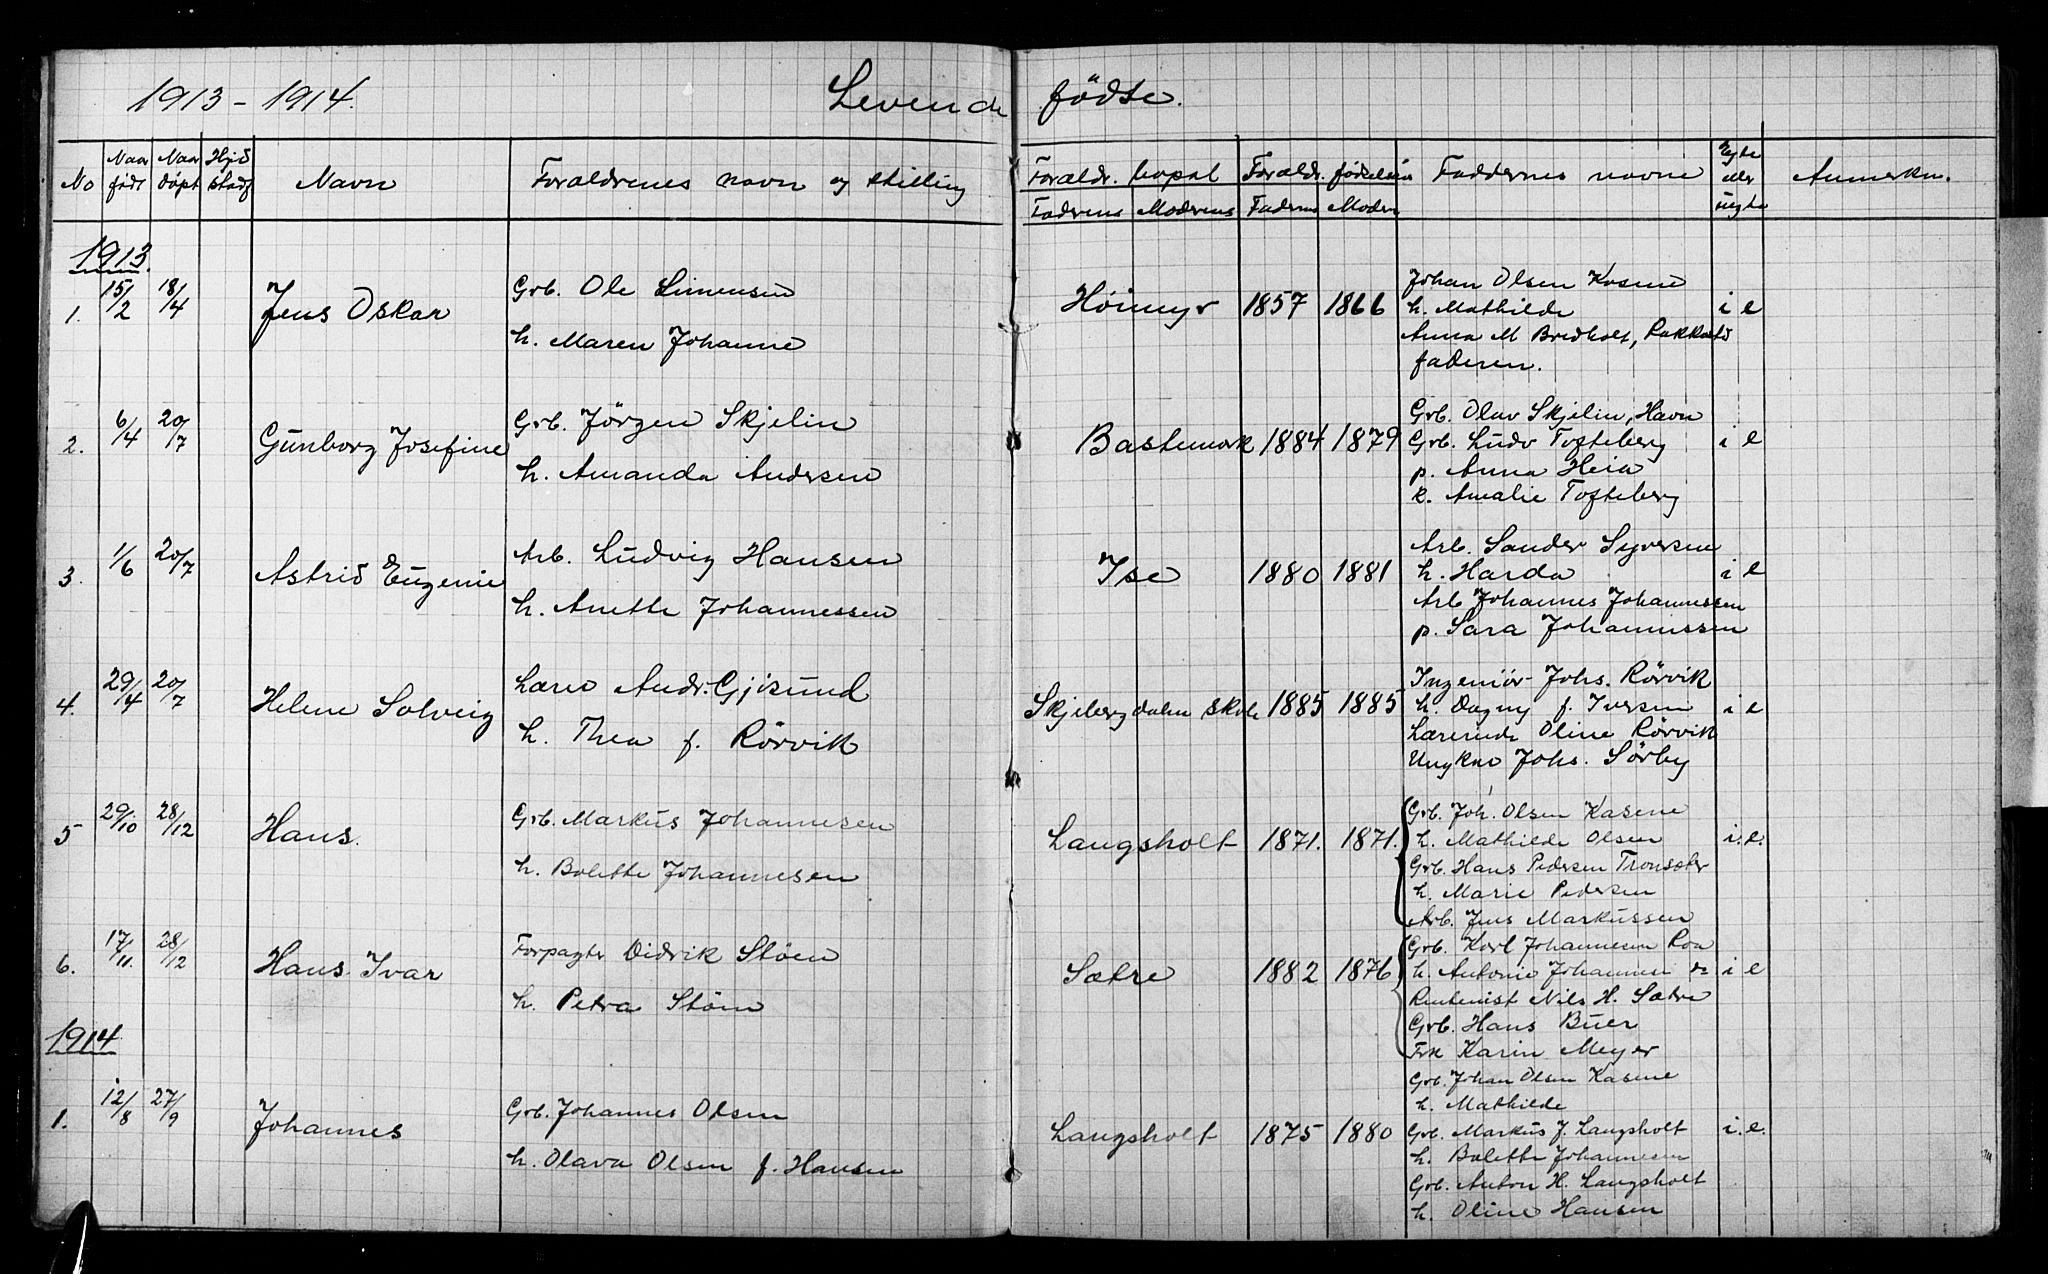 1913 - 1914. Levende födte.
No Naar födt Naar döpt Hjd stadf Navn Forældrenes navn og stilling Forældr. bopæl Forældr. födselsaar Faddernes navne Egte eller uegte Anmerkn.
Faderens Moderens Faderens Moder
1913.
1. 15/2 18/4 Jens Oskar
Grb. Ole Simensen
h. Maren Johanne
Höimyr 1857 1866
Johan Olsen Kasene
h. Mathilde
Anna M Bredholt, Rakkestd
faderen.
i e
2. 6/4 20/7 Gunborg Josefine
Grb. Jörgen Skjelin
h. Amanda Andersen
Bastemork 1884 1879
Grb. Olav Skjelin, Havn
Grb. Ludv Tofteberg
p. Anna Heia
k. Amalie Tofteberg
i e
3. 1/6 20/7 Astrid Eugenie
Arb. Ludvig Hansen
h. Anette Johannessen
Ise 1880 1881
Arb. Sander Syversen
h. Harda
Arb Johannes Johannessen
p. Sara Johannessen
i e
4. 29/4 20/7 Helene Solveig
Lærer Andr. Gjisund
h. Thea f. Rörvik
Skjebergdalen skole 1885 1885
Ingeniör Johs. Rörvik
h. Dagny f. Iversen
Lærerinde Oline Rörvik
Ungkar Johs. Sörby
i e
5 29/10 28/12 Hans.
Grb. Markus Johannesen
h. Bolette Johannesen
Langsholt 1871. 1871.
Grb. Joh. Olsen Kasene
h. Mathilde Olsen
Grb. Hans Pedersen
h. Marie Pedersen
Arb. Jens Markussen
i. e.
6. 17/11. 28/12 Hans Ivar
Forpagter Didrik Stöen
h. Petra Stöen
Sætre 1882 1876
Grb. Karl Johannesen Roa
h. Antonie Johannesen
Rentenist Nils H. Sætre
Grb. Hans Buer
Frk Karin Meyer
i e
1914
1. 12/8 27/9 Johannes
Grb. Johannes Olsen
h. Olava Olsen f. Hansen
Langsholt 1875 1880
Grb. Johan Olsen Kasene
h. Mathilde
Grb. Markus J. Langsholt
h. Bolette Johannesen
Grb. Anton H. Langsholt
h. Oline Hansen
i. e.